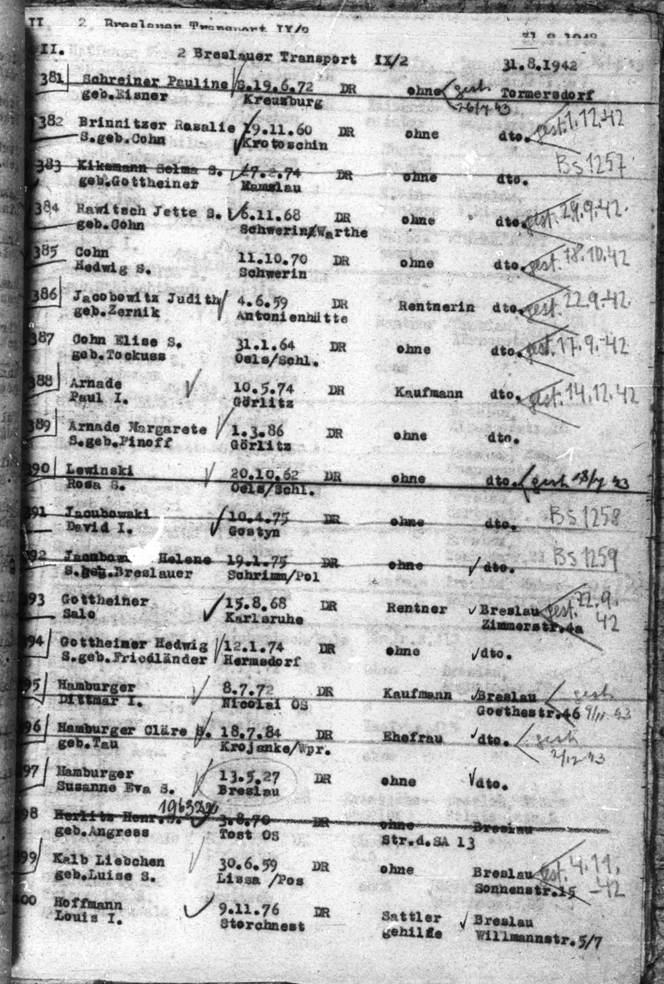 II 2 Breslauer Transport IX/2
31.8.1942
II. 2 Breslauer Transport IX/2 31.8.1942
381 Schreiner Pauline S. 19.6.72 DR ohne gest. Tormersdorf
geb.Eisner Kreuzburg 26/7 43
382 Brinnitzer Rosalie 19.11.60 DR ohne dto. gest. 1.12.42
S.geb.Cohn Krotoschin
383 Kiksmann Selma S. 27.2.74 DR ohne dto. Bs 1257
geb.Gottheiner Namslau
384 Rawitsch Jette S. 6.11.68 DR ohne dto. gest. 29.9.42.
geb.Cohn Schwerin/Warthe
385 Cohn 11.10.70 DR ohne dto. gest. 18.10.42
Hedwig S. Schwerin
386 Jacobowitz Judith 4.6.59 DR Rentnerin dto. gest. 22.9.42.
geb.Zernik Antonienhütte
387 Cohn Elise S. 31.1.64 DR ohne dto. gest. 17.9.42
geb.Tockuss Oels/Schl.
388 Arnade 10.5.74 DR Kaufmann dto. gest. 14.12.42
Paul I. Görlitz
389 Arnade Margarete 1.3.86 DR ohne dto.
S.geb.Pinoff Görlitz
90 Lewinski 20.10.62 DR ohne dto. gest 18/7 43
Rosa S. Oels/Schl.
91 Jacubowski 10.4.75 DR ohne dto. Bs 1258
David I. Gostyn
92 Helene 19.1.75 DR ohne dto. Bs 1259
S.geb.Breslauer Schrimm/Pol
93 Gottheiner 15.8.68 DR Rentner Breslau gest. 22.9.
Salo Karlsruhe Zimmerstr.4a 42
94 Gottheiner Hedwig 12.1.74 DR ohne dto.
S.geb.Friedländer Hermsdorf
95 Hamburger 8.7.72 DR Kaufmann Breslau gest.
Dittmar I. Nicolai OS Goethestr.46 43
96 Hamburger Cläre S. 18.7.84 DR Ehefrau dto. gest.
geb.Tau Krojanke/Wpr. 2/12 43
97 Hamburger 13.5.27 DR ohne dto.
Susanne Eva S. Breslau
98 Herlitz Henr.S. 3.8.70 DR ohne Breslau
geb.Angress Tost OS Str.d.SA 13
99 Kalb Liebchen 30.6.59 DR ohne Breslau gest. 4.11.
geb.Luise S. Lissa /Pos Sonnenstr.15 -42
00 Hoffmann 9.11.76 DR Sattler Breslau
Louis I. Storchnest gehilfe Willmannstr.5/7